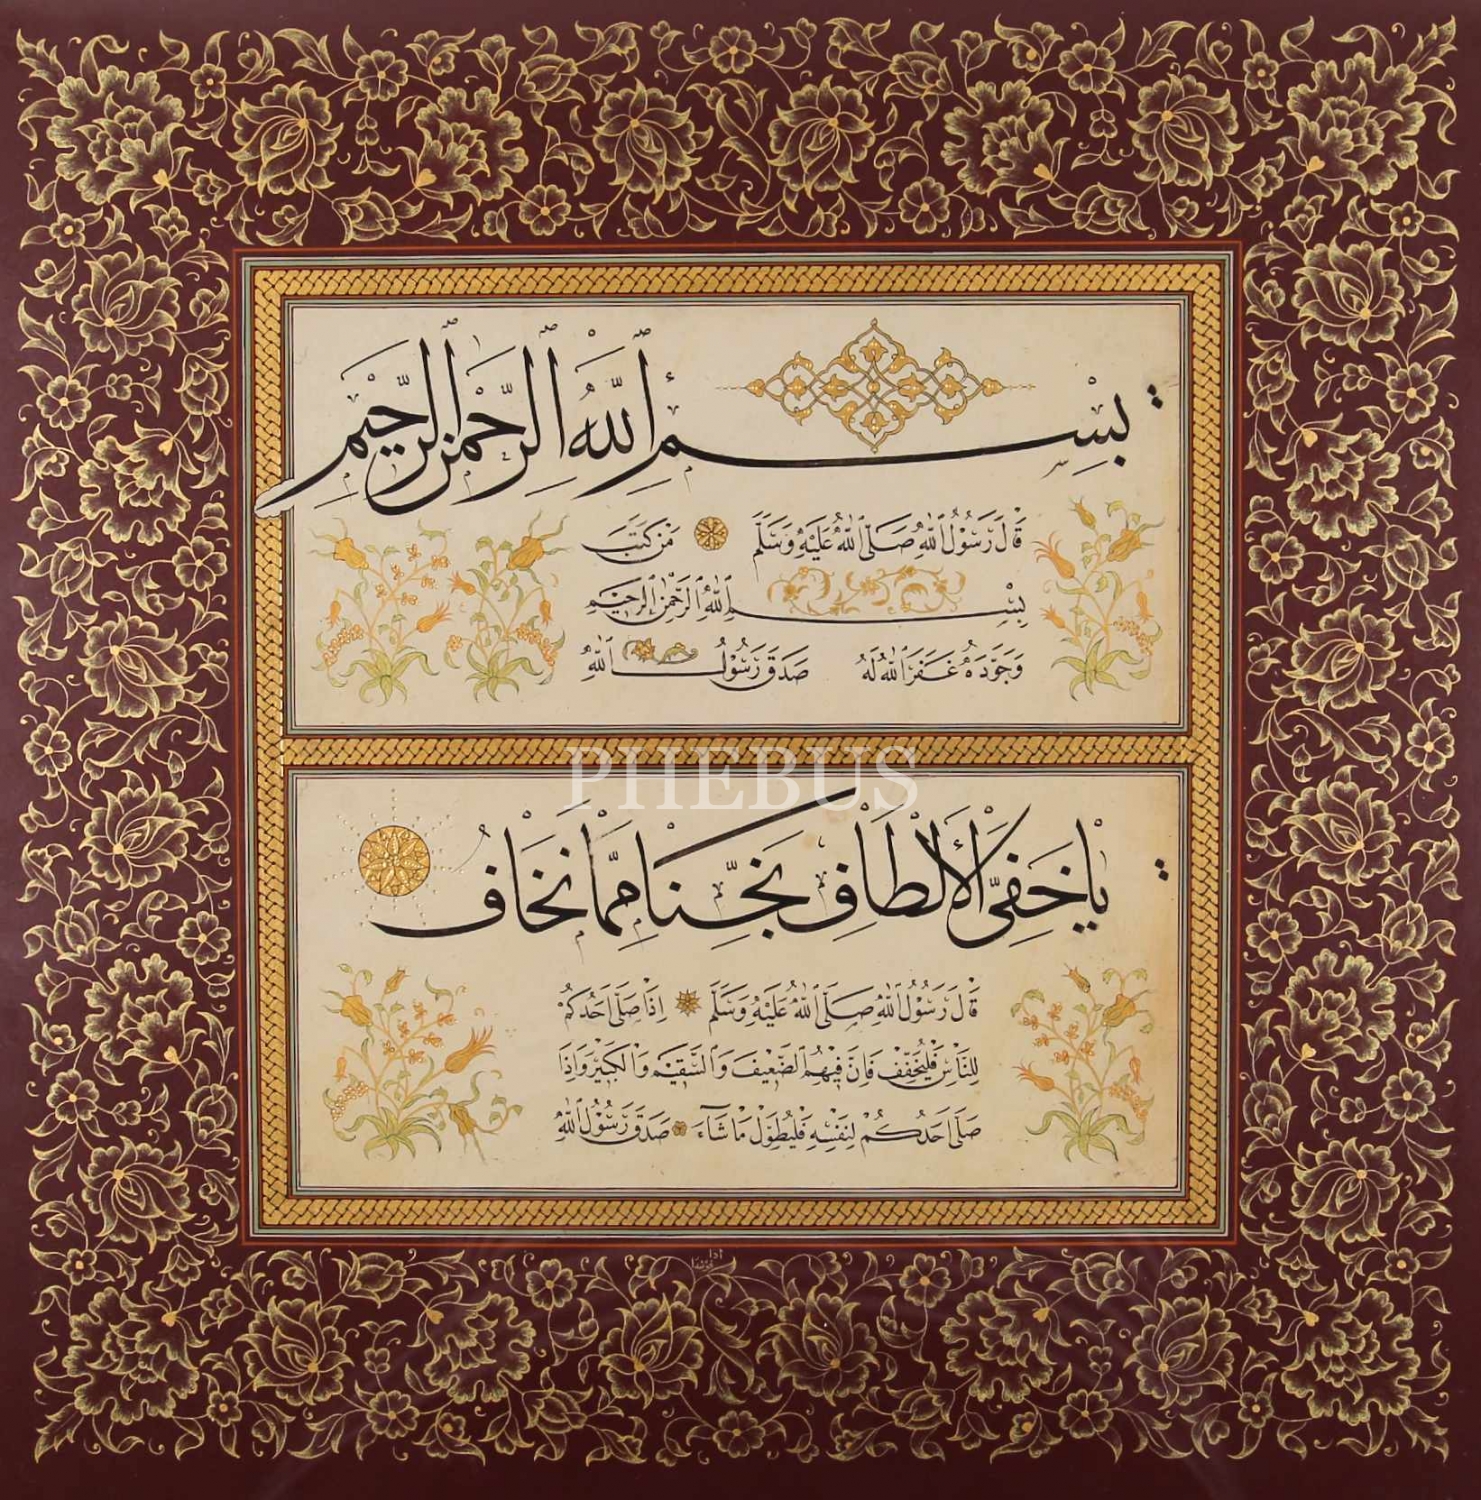 بِسْمِ ٱللّٰهِ ٱلرَّحْمٰنِ ٱلرَّحِيْمِ
قَالَ رَسُوْلُ ٱللّٰهِ صَلَّى ٱللّٰهُ عَلَيْهِ وَسَلَّمَ مَنْ كَتَبَ
بِسْمِ ٱللّٰهِ ٱلرَّحْمٰنِ ٱلرَّحِيْمِ
وَجَوَّدَهُ غَفَرَ ٱللّٰهُ لَهُ صَدَقَ رَسُوْلُ ٱللّٰهِ
PHEBUS
يَا خَفِيَّ الْأَلْطَافِ نَجِّنَا مِمَّا نَخَافُ
قَالَ رَسُوْلُ ٱللّٰهِ صَلَّى ٱللّٰهُ عَلَيْهِ وَسَلَّمَ اِذَا صَلَّى اَحَدُكُمْ
لِلنَّاسِ فَلْيُخَفِّفْ فَاِنَّ فِيْهِمُ الضَّعِيْفَ وَالسَّقِيْمَ وَالْكَبِيْرَ وَاِذَا
صَلَّى اَحَدُكُمْ لِنَفْسِهِ فَلْيُطَوِّلْ مَا شَآءَ صَدَقَ رَسُوْلُ ٱللّٰهِ